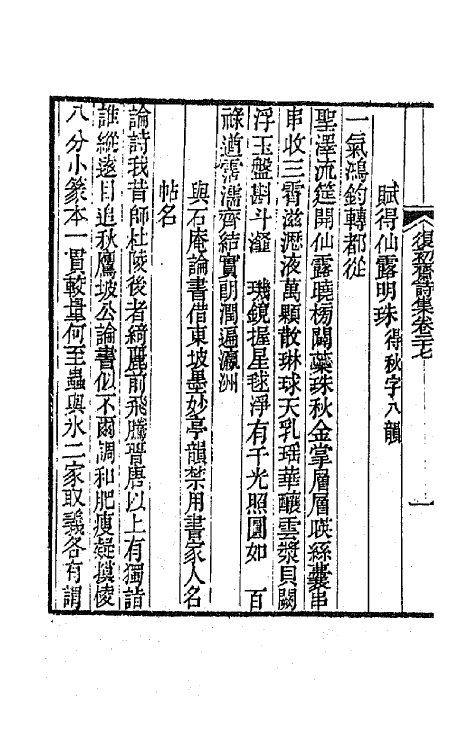 復初齋詩集卷三十七
賦得仙露明珠得秋字八韻
一氣鴻鈞轉都從
聖澤流筵開仙露曉榜闢蘂珠秋金掌層層暎絲囊串
串收三霄滋瀝液萬顆散琳球天乳瑶華釀雲漿貝闕
浮玉盤斟斗瀣 璣鏡握星毬淨有千光照圓如 百
祿遒霑濡齊結實朗潤遍瀛洲
與石庵論書借東坡墨妙亭韻禁用書家人名
帖名
論詩我昔師杜陵後者綺麗前飛騰晋唐以上有獨詣
誰縱遠目追秋鷹坡公論書似不爾調和肥瘦疑摸稜
八分小篆本一貫較量何至蟲與氷二家取義各有謂